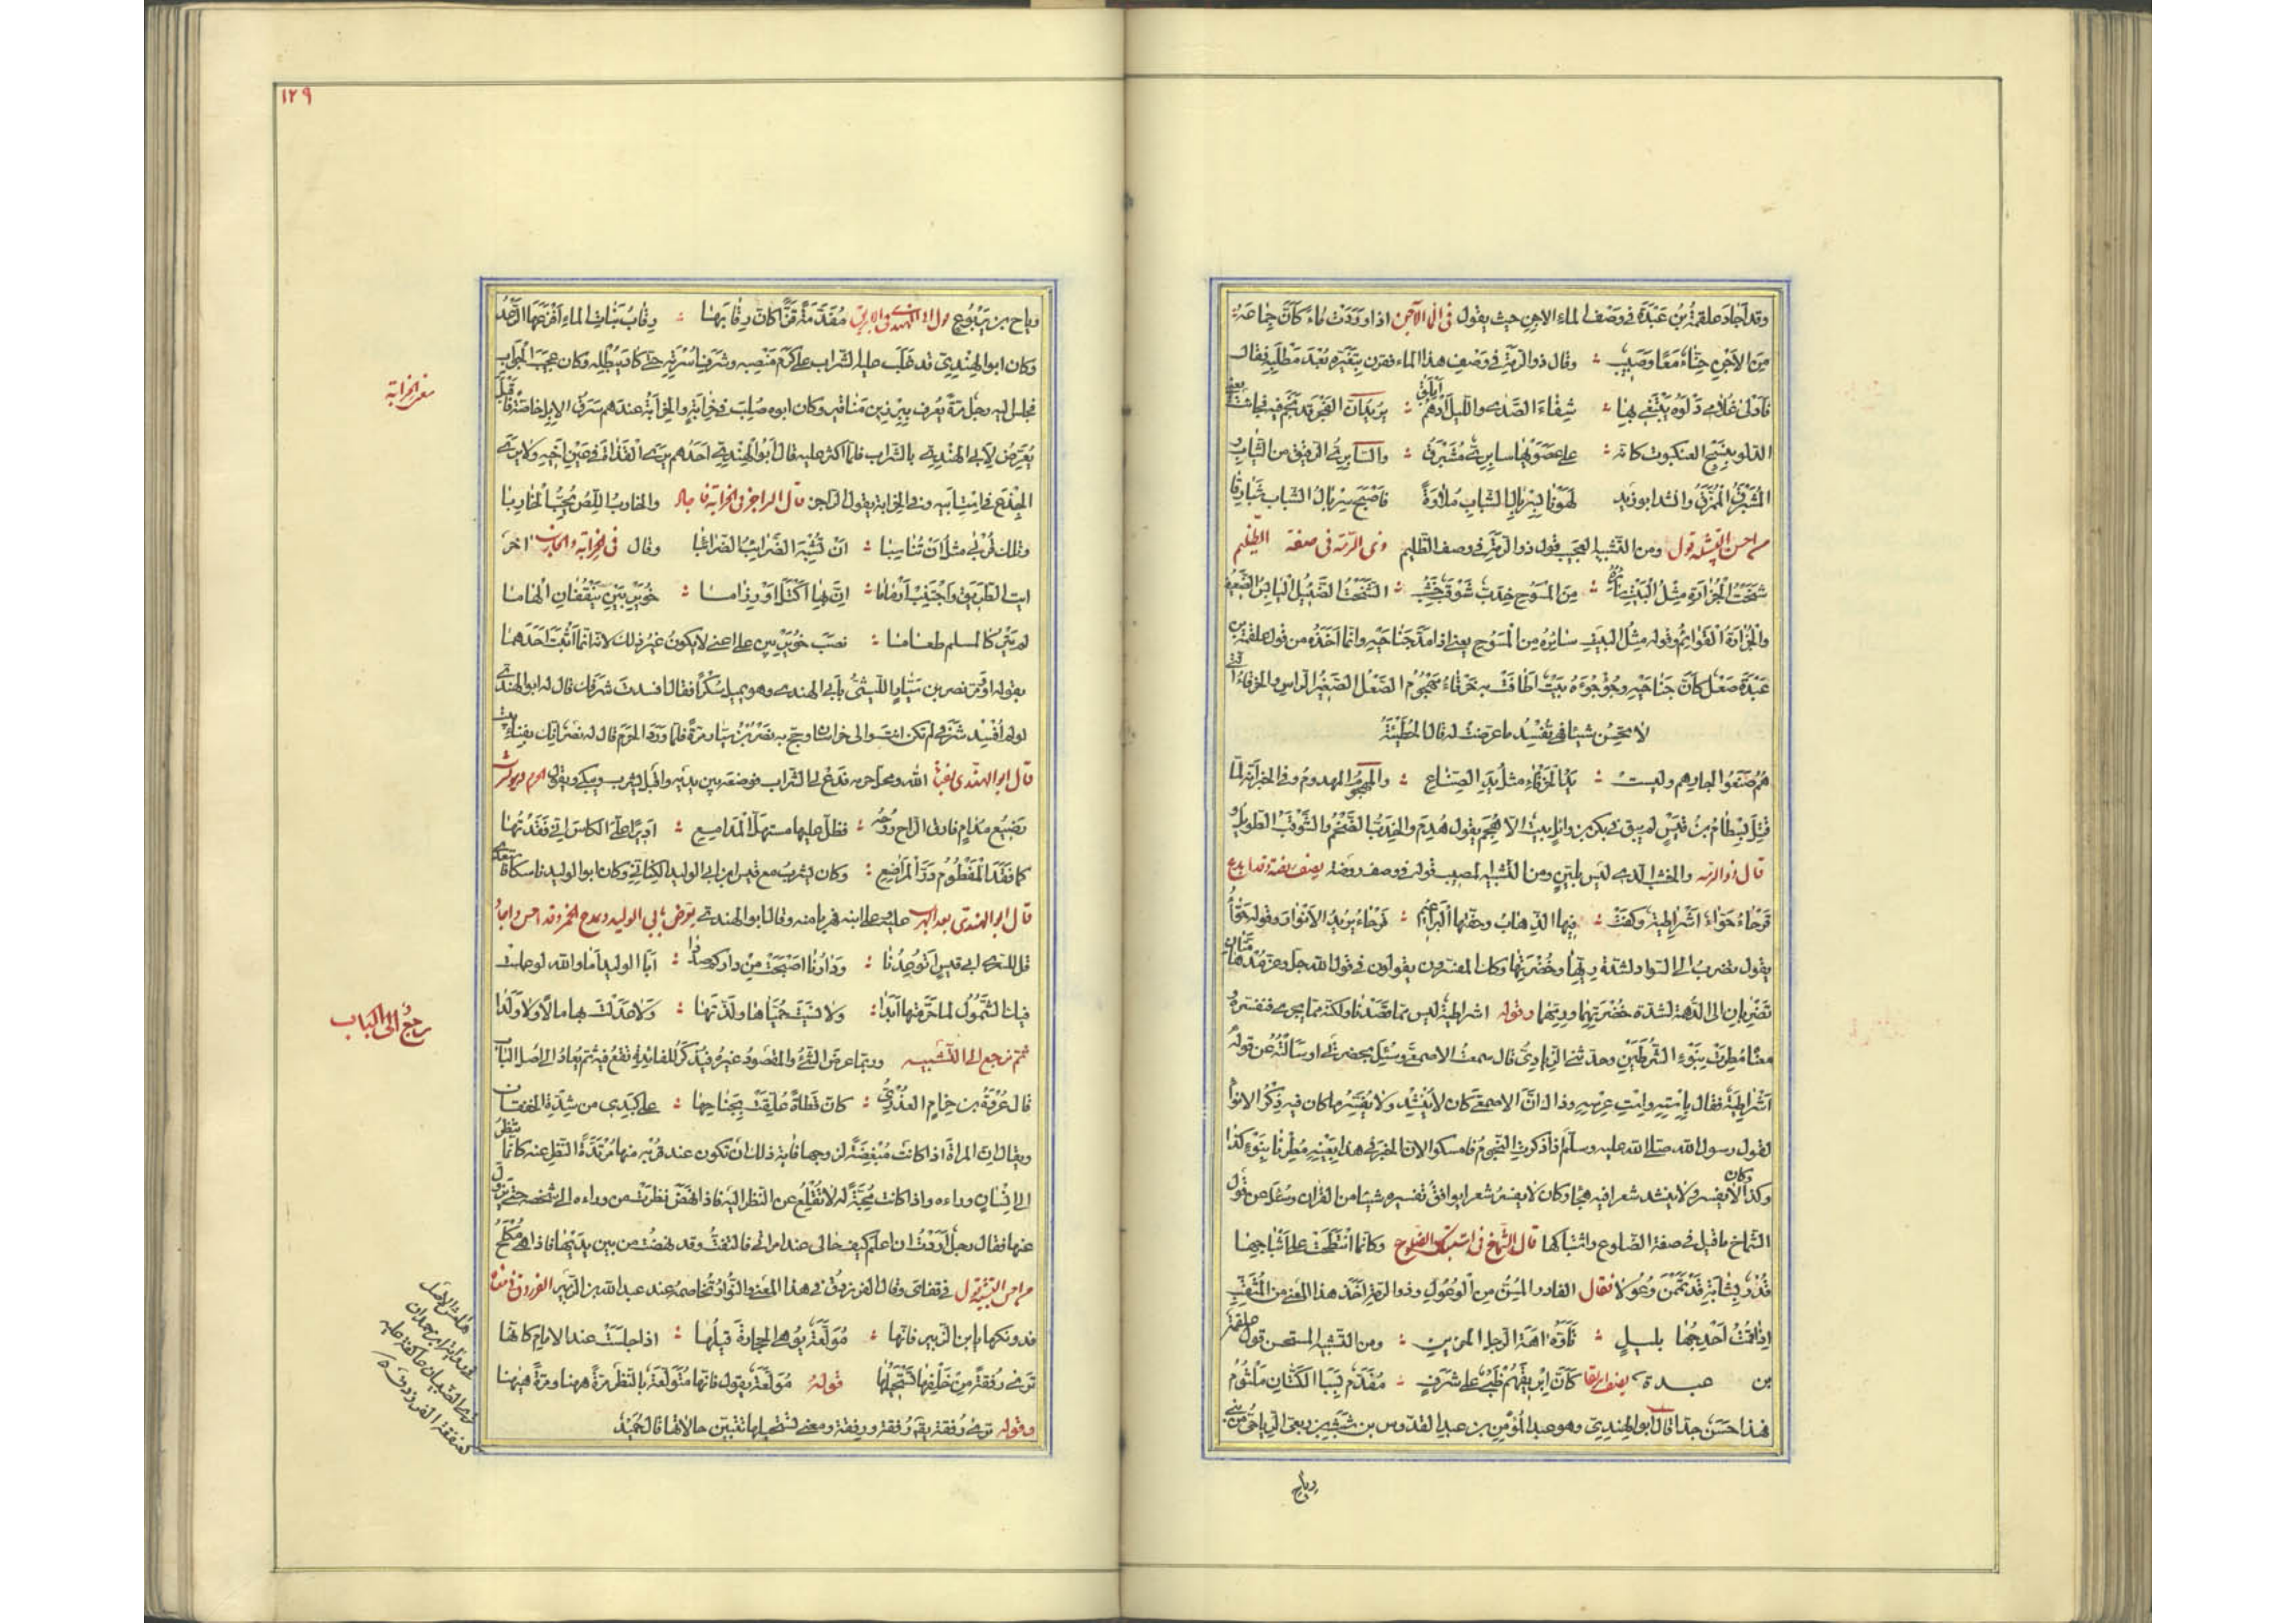 وقد اجاد علقمة بن عبدة في وصف الماء الاجن حيث يقول في الماء الآجن اذا وردت ماء كأن جمامه
من الاجن حناء معا وصبيب ؛ وقال ذو الرمة في وصف هذا الماء فقرن بتغيره بعد مطلبه فقال
فأدلى غلامي دلوه يبتغي بها ؛ شفاء الصدى والليل ادهم ابلق ؛ يريد ان الفجر قد نجم فيه فجاءت
الدلو بنسج العنكبوت كانه ؛ على عصويها سابري مشبرق ؛ والسابري الرقيق من الثياب و
المشبرق الممزق وانشد ابو زيد لهونا بسربال الشباب ملاوة فاصبح سربال الشباب شبارقا
من احسن التشبيه قول ومن التشبيه العجيب قول ذي الرمة في وصف الظليم ذى الرمة في صفة الظليم
شخت الجزارة مثل البيت سائره ؛ من المسوح خدب شوقب خشب ؛ الشخت الضئيل اليابس الضعيف
والجزارة القوائم وقوله مثل البيت سائره من المسوح يعني اذا مد جناحيه وانما اخذه من قول علقمة بن
عبدة صعل كأن جناحيه وجؤجؤه بيت اطافت به خرقاء مهجوم الصعل الصغير الراس والخرقاء التي
لا تحسن شيئا فهي تفسد ما عرضت له قال الحطيئة
هم صنعوا لجارهم وليست ؛ يد الخرقاء مثل يد الصناع ؛ والمهجوم المهدوم وفي الخبر انه لما
قتل بسطام بن قيس لم يبق في بكر بن وائل بيت الا هجم يقول هدم والخدب الضخم والشوقب الطويل و
قال ذو الرمة والخشب الذي ليس بلين ومن التشبيه المصيب قوله في وصف روضة يصف روضة
قرحاء حواء اشراطية وكفت ؛ فيها الذهاب وحفتها البراعيم ؛ قرحاء يريد الانوار وقوله حواء
يقول تضرب الى السواد لشدة ريها وخضرتها وكان المفسرون يقولون في قول الله جل وعز مدهامتان
تضربان الى الدهمة لشدة خضرتهما وريهما وقوله اشراطية ليس مما قصدنا ولكنه مما يجري فنفسره
معناه مطرت بنوء الشرطين وحدثني الزيادي قال سمعت الاصمعي وسئل بحضرتي او سالته عن قوله
اشراطية فقال باسته واست عرسه وذاك ان الاصمعي كان لا ينشد ولا يفسر ما كان فيه ذكر الانواء
لقول رسول الله صلى الله عليه وسلم اذا ذكرت النجوم فامسكوا لان الخبر في هذا بعينه مطرنا بنوء كذا
وكان
وكذا لا يفسر ولا ينشد شعرا فيه هجاء وكان لا يفسر شعرا يوافق تفسيره شيئا من القران وسئل عن قول
الشماخ ما قيل في صفة الضلوع واشتباكها قال الشماخ في اشتباك الضلوع وكانما انتطحت على اثباجها
فدر بشابة قد تممن وعولا فقال الفادر المسن من الوعول وذو الرمة اخذ هذا المعنى من المثقب
اذا ما قمت احدجها بليل ؛ تاوه اهة الرجل الحزين ؛ ومن التشبيه المستحسن قول علقمة
بن عبدة يصف ابريقا كأن ابريقهم ظبي على شرف ؛ مفدم بسبا الكتان ملثوم
فهذا حسن جدا قال ابو الهندي وهو عبد المؤمن بن عبد القدوس بن شبث بن ربعي الرياحي من بني
رياح
١٢٩
رياح بن يربوع مفدمة قزا كان رقابها ؛ رقاب بنات الماء افزعها الرعد
وكان ابو الهندي قد غلب عليه الشراب على كرم منصبه وشرف اسرته حتى كاد يبطله وكان عجيب الجواب
فجلس اليه رجل مرة يعرف ببرزين مناقير وكان ابوه صلب في خرابة والخرابة عندهم سرق الابل خاصة فاقبل
يعرض لابي الهندي بالشراب فلما اكثر عليه قال ابو الهندي احدهم يرى القذاة في عين اخيه ولا يرى
الجذع في است ابيه وفي الخرابة يقول الراجز قال الراجز في الخرابة والخارب اللص يحب الخاربا
وتلك قربى مثل ان تناسبا ؛ ان تشبه الضرائب الضرائبا وقال في الخرابة والخارب اخر
ايت الطريق واجتنب ارماما ؛ ان بها اكتل او رزاما ؛ خويربين ينقفان الهاما
لم يتركا لمسلم طعاما ؛ نصب خويربين على اعني لا يكون غير ذلك لانه انما اثبت احدهما
بقوله او ومر نصر بن سيار الليثي بابي الهندي وهو يميل سكرا فقال افسدت شرفك قال له ابو الهندي
لو لم افسد شرفي لم تكن انت والي خراسان وحج به نصر بن سيار مرة فلما ورد الحرم قال له نصر انك بفناء بيت
قال ابو الهندي الله ومحل حرمه فدع لي الشراب فوضعه بين يديه واقبل يشرب ويبكي ويقول
رضيع مدام فارق الراح روحه ؛ فظل عليها مستهل المدامع ؛ اديرا علي الكاس اني فقدتها
كما فقد المفطوم در المراضع ؛ وكان يشرب مع قيس بن ابي الوليد الكناني وكان ابو الوليد ناسكا
قال ابو الهندي عليه وعلى ابنه فهربا منه وقال ابو الهندي يعرض بابي الوليد ويمدح الخمر وقد احسن واجاد
قل للسري ابي قيس اتوعدنا ؛ ودارنا اصبحت من داركم صددا ؛ ابا الوليد اما والله لو عملت
فيك الشمول لما حرمتها ابدا ؛ ولا نسيت حمياها ولذتها ؛ ولا عدلت بها مالا ولا ولدا
ثم نرجع الى التشبيه وربما عرض الشيء والمقصود غيره فيذكر للفائدة تقع فيه ثم يعاد الى اصل الباب
قال عروة بن حزام العذري ؛ كان قطاة علقت بجناحها ؛ على كبدي من شدة الخفقان
ويقال ان المراة اذا كانت مبغضة لزوجها فاية ذلك ان تكون عند قربه منها مرتدة النظر عنه كانما تنظر
الى انسان وراءه واذا كانت محبة له لا تقلع عن النظر اليه فاذا نهض نظرت من وراءه الى شخصه حتى يزول
عنها فقال رجل اردت ان اعلم كيف حالي عند امراتي فالتفت وقد نهضت من بين يديها فاذا هي تكلح
من احسن التشبيه قول في قفاي وقال الفرزدق في هذا المعنى والنوار تخاصمه عند عبد الله بن الزبير
فدونكها يا ابن الزبير فانها ؛ مولعة يوهي الحجارة قيلها ؛ اذا جلست عند الامام كانها
ترى رفقة من خلفها تستحيلها قوله مولعة يقول فانها متولعة بالنظر مرة ههنا ومرة ههنا
وقوله ترى رفقة يقال رفقة ورفقة ومعنى تستحيلها تتبين حالاتها قال حميد
معنى الخرابة
رجع الى الباب